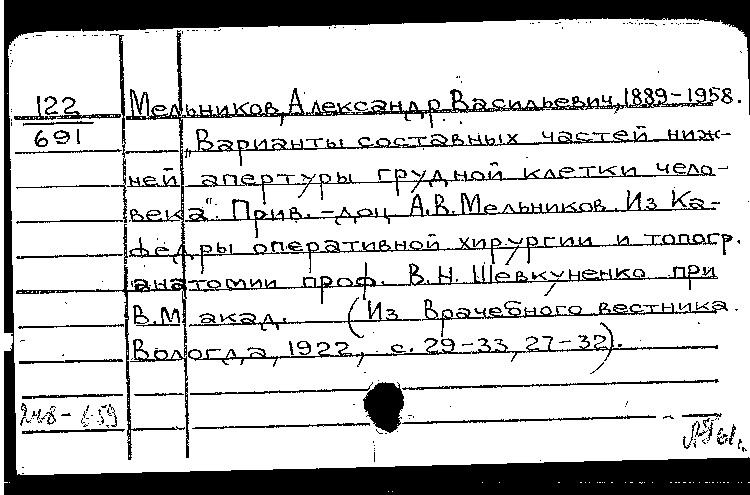 122
691
Мельников, Александр Васильевич, 1889-1958.
„Варианты составных частей ниж-
ней апертуры грудной клетки чело-
века“. Прив.-доц. А.В.Мельников. Из Ка-
федры оперативной хирургии и топогр.
анатомии проф. В.Н. Шевкуненко при
В.М. акад. (Из Врачебного вестника.
Вологда, 1922, с. 29-33, 27-32).
248-659